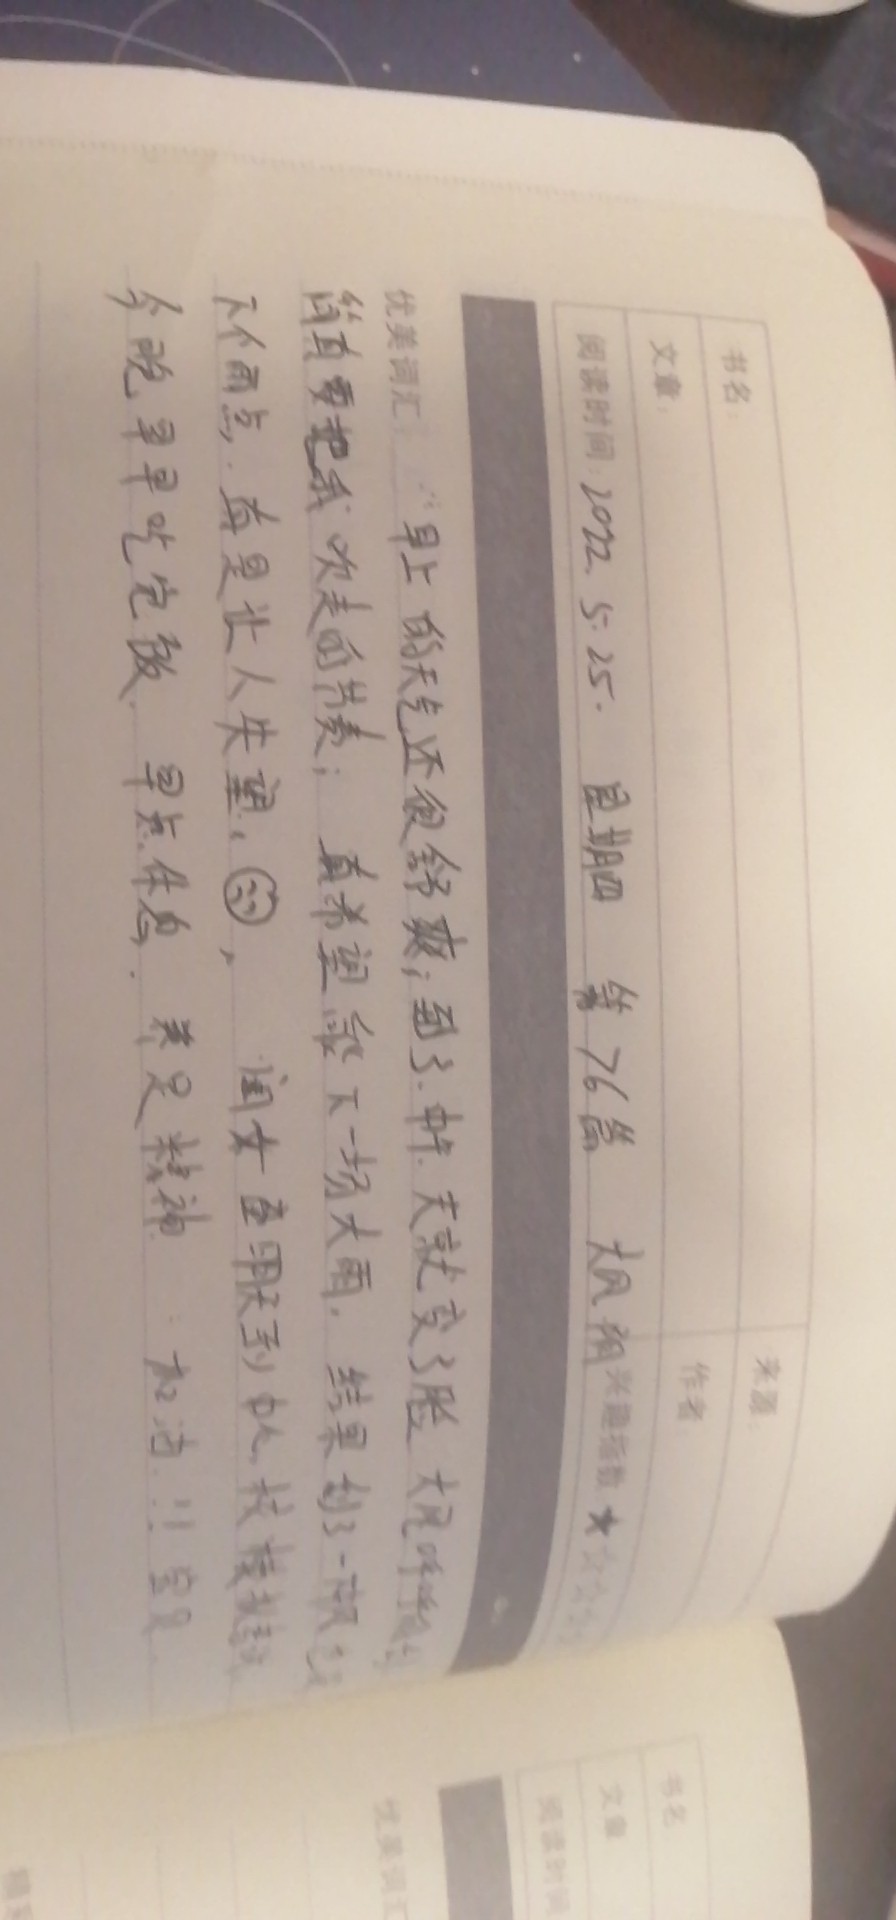 书名：
来源：
文章：
作者：
阅读时间：2022.5.25. 星期四 第76篇 大风 兴趣指数 ★☆☆☆
优美词汇： "早上的天气还很舒爽；到了中午.天就变了脸 大风呼呼
简直要把我吹走的节奏； 真希望 下一场大雨. 结果刮了一
下个雨点，真是让人失望、 ， 闺女 明天到 校模拟考试
今晚早早吃完饭. 早点休息. 养足精神 加油！！ 宝贝
书名
文章
阅读时间
优美词汇